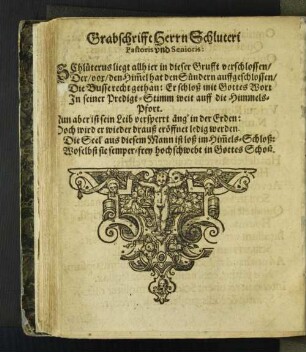 Grabschrifft Herrn Schluteri
Pastoris vnd Senioris:
SChlüterus liegt allhier in dieser Grufft verschlossen/
Der/vor/den Him̃el hat den Sündern auffgeschlossen/
Die Busse recht gethan: Er schloß mit Gottes Wort
In seiner Predigt-Stimm weit auff die Himmels-
Pfort.
Nun aber ist sein Leib versperrt in der Erden:
Doch wird er wieder drauß eröffnet ledig werden.
Die Seel aus diesem Mann ist loß im Him̃els-Schloß:
Woselbst sie semper-frey hoch schwebt in Gottes Schoß.